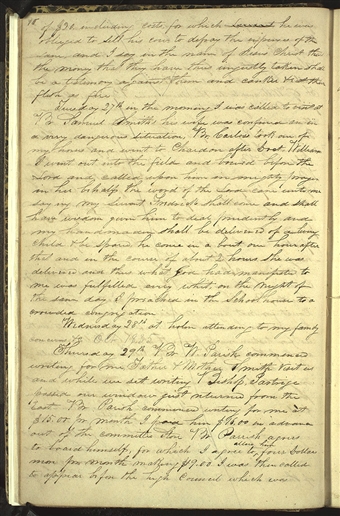 18
of $20 including costs, for which he was
obliged to sell his cow to defray the expenses of the
same and I say in the name of Jesus Christ that
the money that they have thus unjustly taken shall
be a testimony against them and canker & eat their
flesh as fire
Tuesday 27th in the morning I was called to visit at
Br Samuel Smiths his wife was confined & in
a very dangerous situation, Br Carloss took one of
my horses and went to Chardon after Doct. Williams
I went out into the field and bowed before the
Lord and called upon him in mighty prayer
in her behalf the word of the Lord came unto me
saying my Servant Fredrick shall come and shall
have wisdom given him to deal prudently and
my handmaid shall be delivered of a living
child & be spared he come in about one hour after
that and in the course of about 2 hours she was
delivered and thus what God had manifested to
me was fulfilled every whit, on the night of
the same day I preached in the School house to a
crowded congregation
Wednesday 28th at home attending to my family
concerns &c Oct 1835
Thursday 29th Br W. Parish commenced
writing for me Father & Mother Smith visit us
and while we set writing Bishop Partrige
passed our window just returned from the
East - Br Parish commenced writing for me at
$15.00 pr month I paid him $16.00 in advance
out of the committee Store Br Parrish agrees
to board himself, for which I agree to four Dollars
more pr month making $19.00. I was then called
to appear before the high Council which was